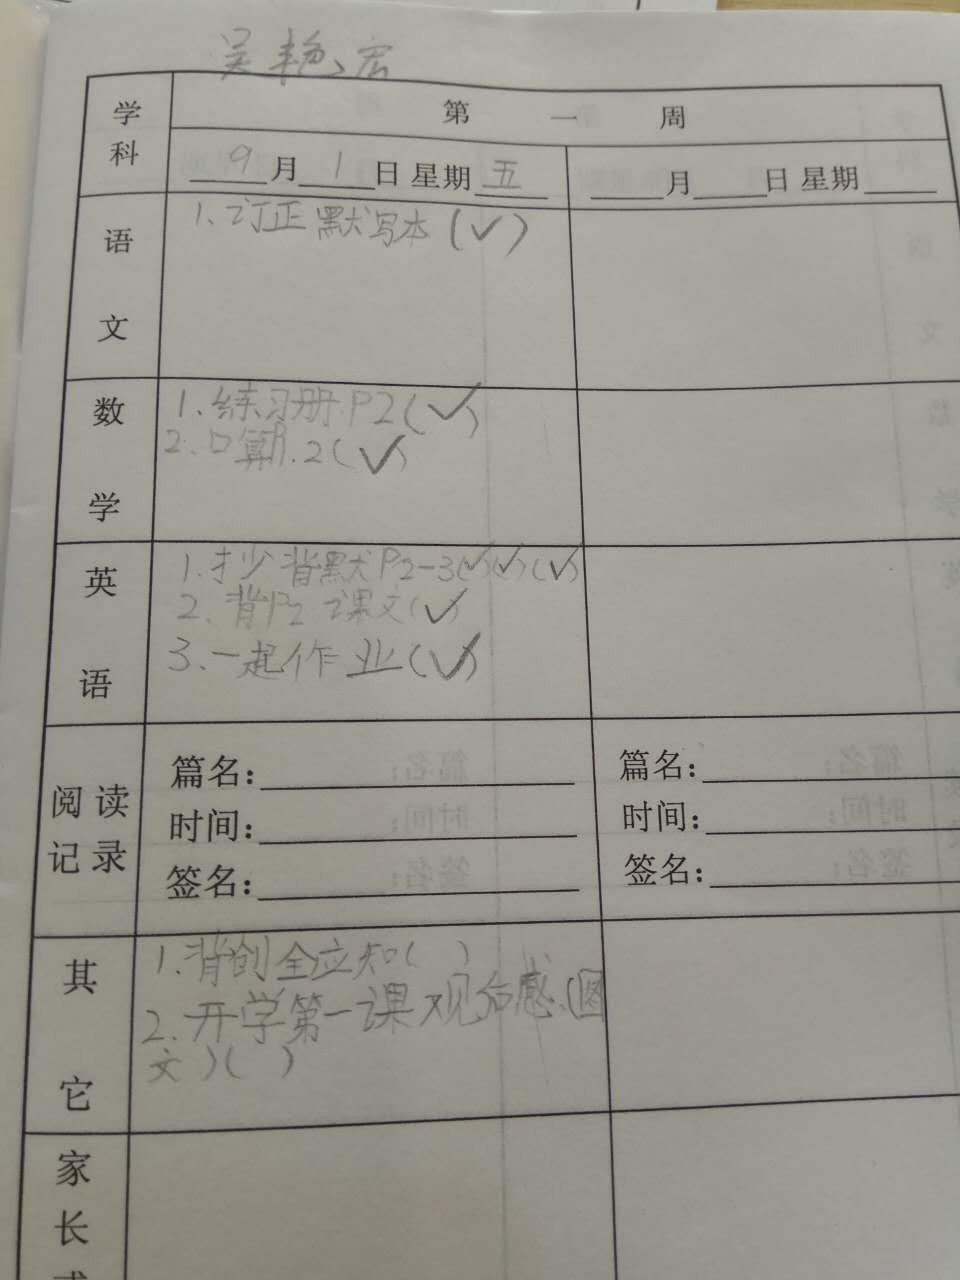 吴艳宏
学科
第 一 周
9月1日 星期五
月 日 星期
语文
1.订正默写本(✓)
数学
1.练习册P2(✓)
2.口算.2(✓)
英语
1.抄背默P2-3(✓)(✓)(✓)
2.背P2课文(✓)
3.一起作业(✓)
阅读记录
篇名:
时间:
签名:
篇名:
时间:
签名:
其它
1.背创全应知( )
2.开学第一课观后感(图
文)( )
家
长